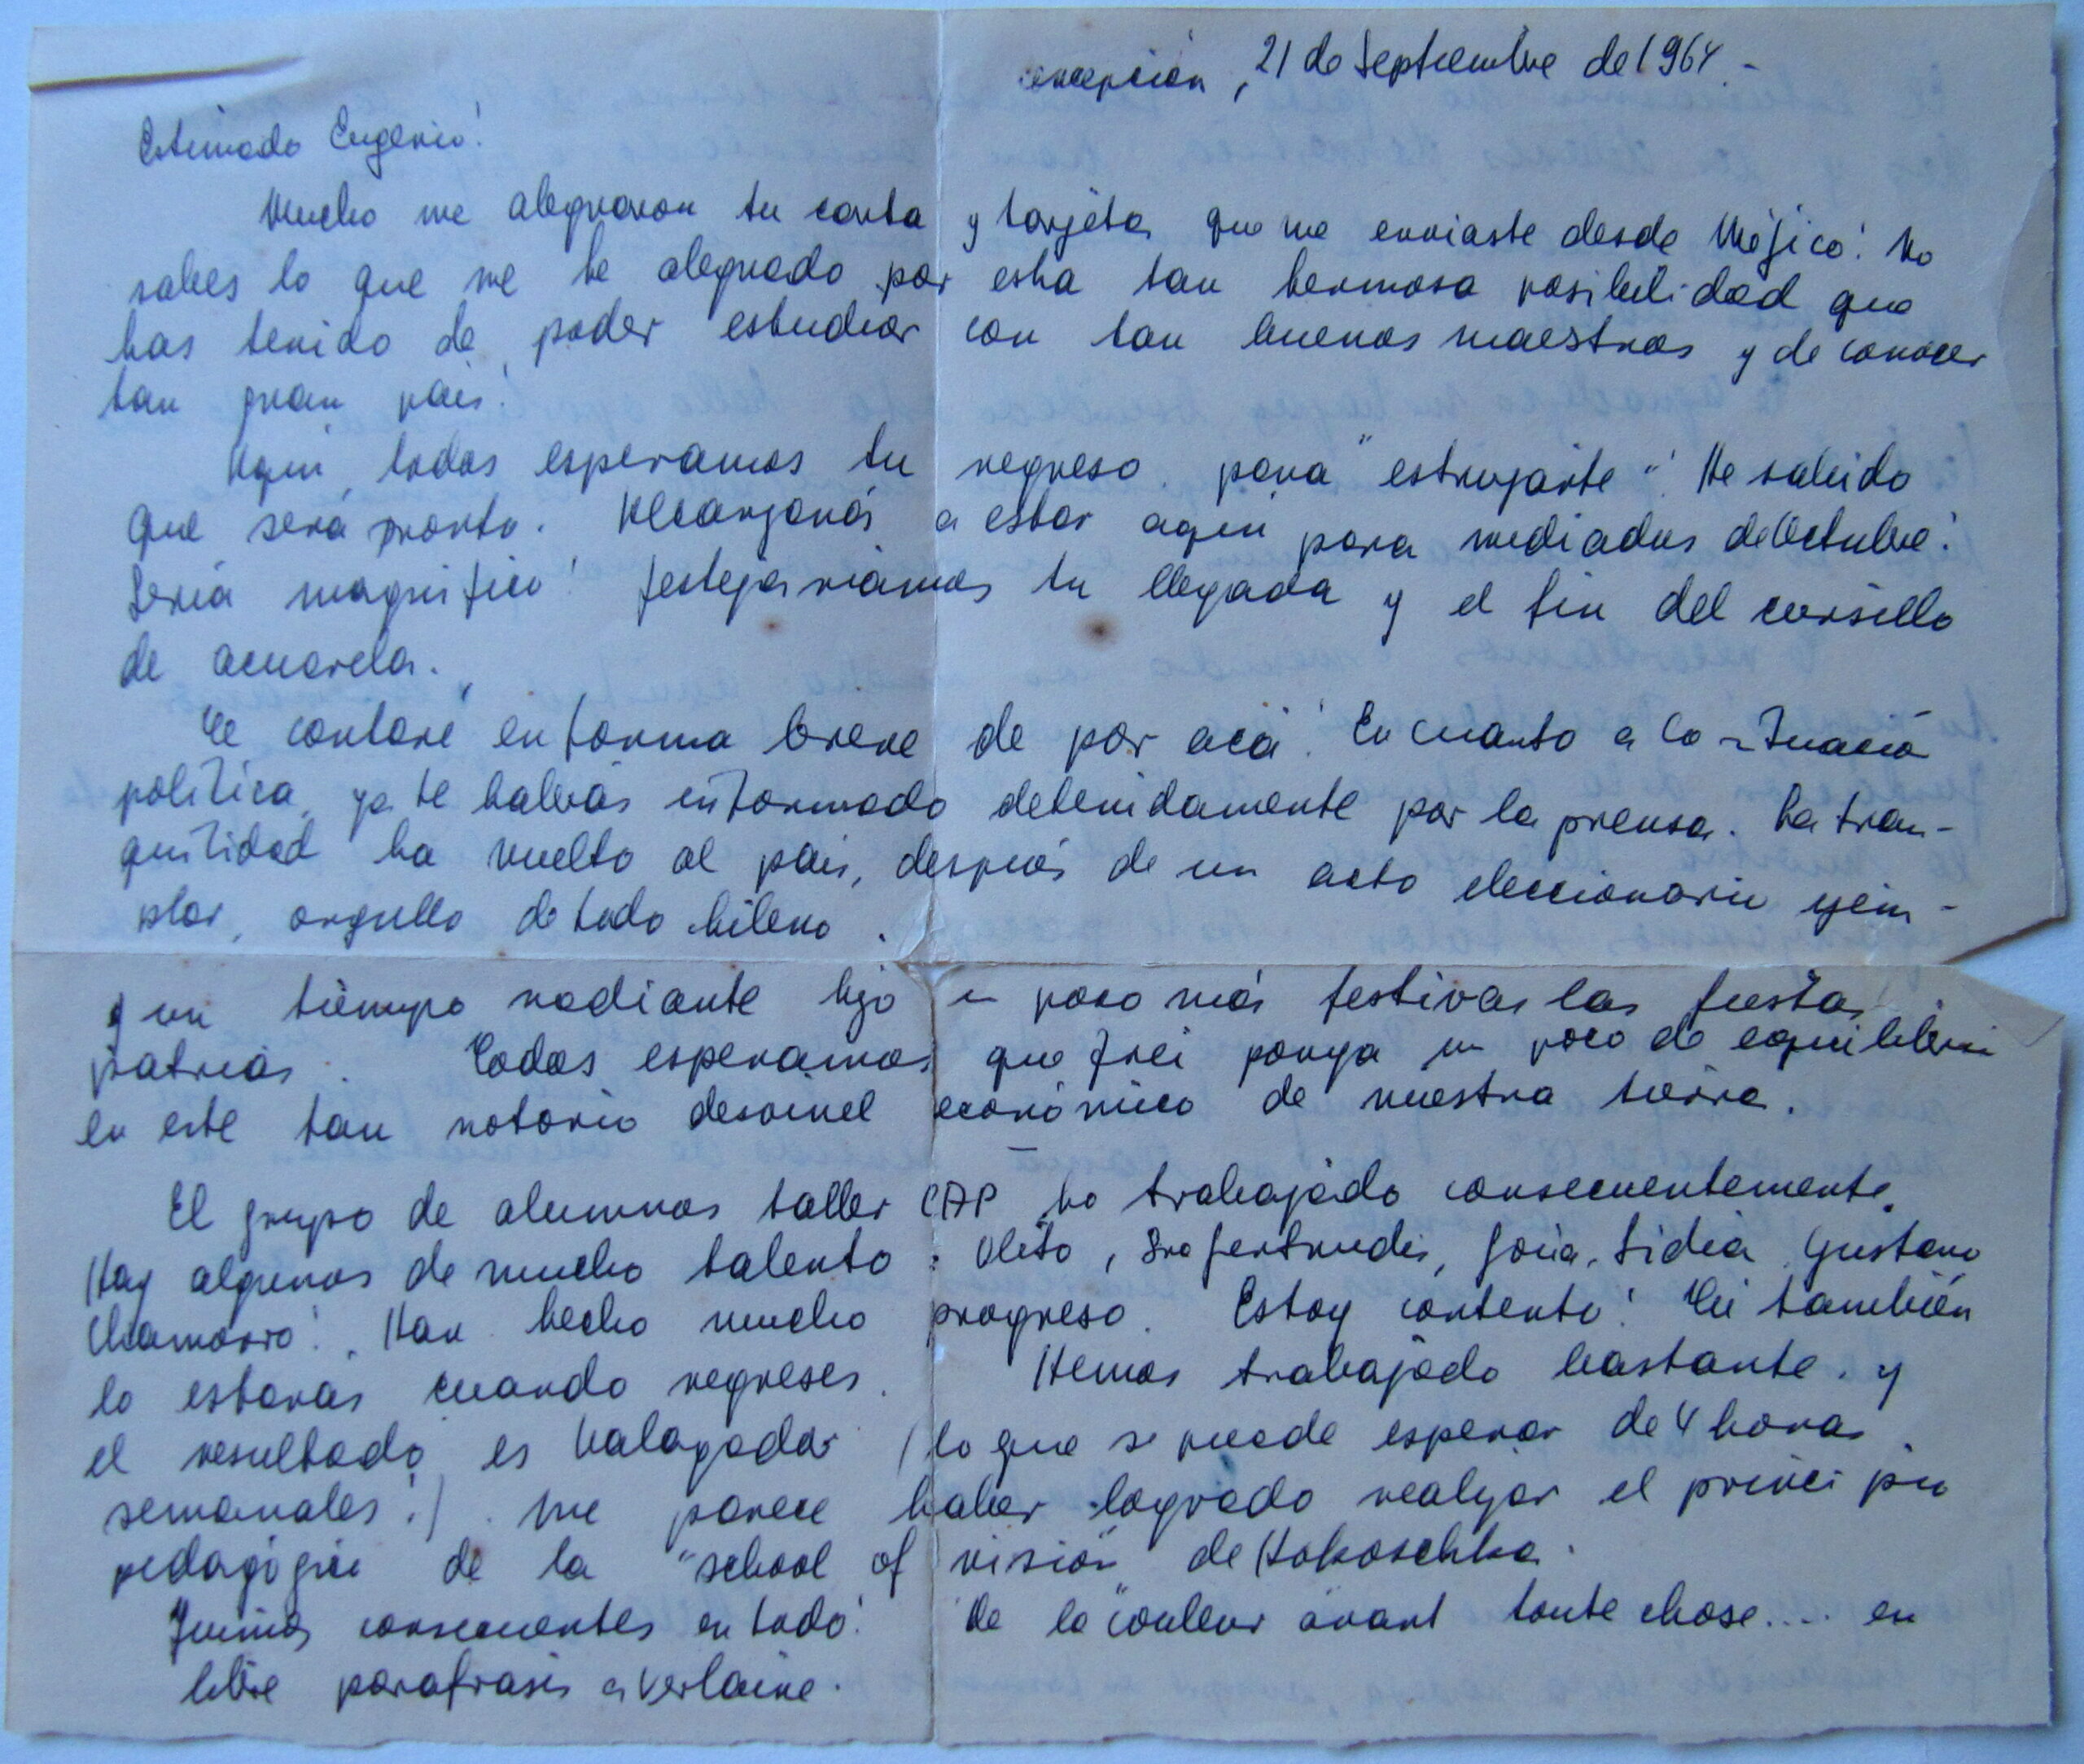 Concepción, 21 de Septiembre de 1964.-
Estimado Eugenio!
Mucho me alegraron tu carta y tarjeta que me enviaste desde Méjico! No
sabes lo que me he alegrado por esta tan hermosa posibilidad que
has tenido de poder estudiar con tan buenos maestros y de conocer
tan gran país!
Aquí todos esperamos tu regreso para "estrujarte"! He sabido
que será pronto. Alcanzarás a estar aquí para mediados de Octubre!
Sería magnífico! festejaríamos tu llegada y el fin del cursillo
de acuarela.
Te contaré en forma breve de por acá! En cuanto a la situació
política, ya te habrás informado detenidamente por la prensa. La tran-
quilidad ha vuelto al país, después de un acto eleccionario ejem-
plar, orgullo de todo chileno.
y un tiempo radiante hizo un poco más festivas las fiestas
patrias. Todos esperamos que Frei ponga un poco de equilibrio
en este tan notorio desnivel económico de nuestra tierra.
El grupo de alumnos taller CAP ha trabajado consecuentemente.
Hay algunos de mucho talento: Sra Gertrudis, Lidia, Gustavo
Chamorro! Han hecho mucho progreso. Estoy contento! Tú también
lo estarás cuando regreses. Hemos trabajado bastante y
el resultado es halagador (lo que se puede esperar de 4 horas
semanales!). Me parece haber logrado realizar el principio
pedagógico de la "school of vision" de Kokoschka.
Fuimos consecuentes en todo! "De la couleur avant toute chose.... en
libre parafrasis a Verlaine.